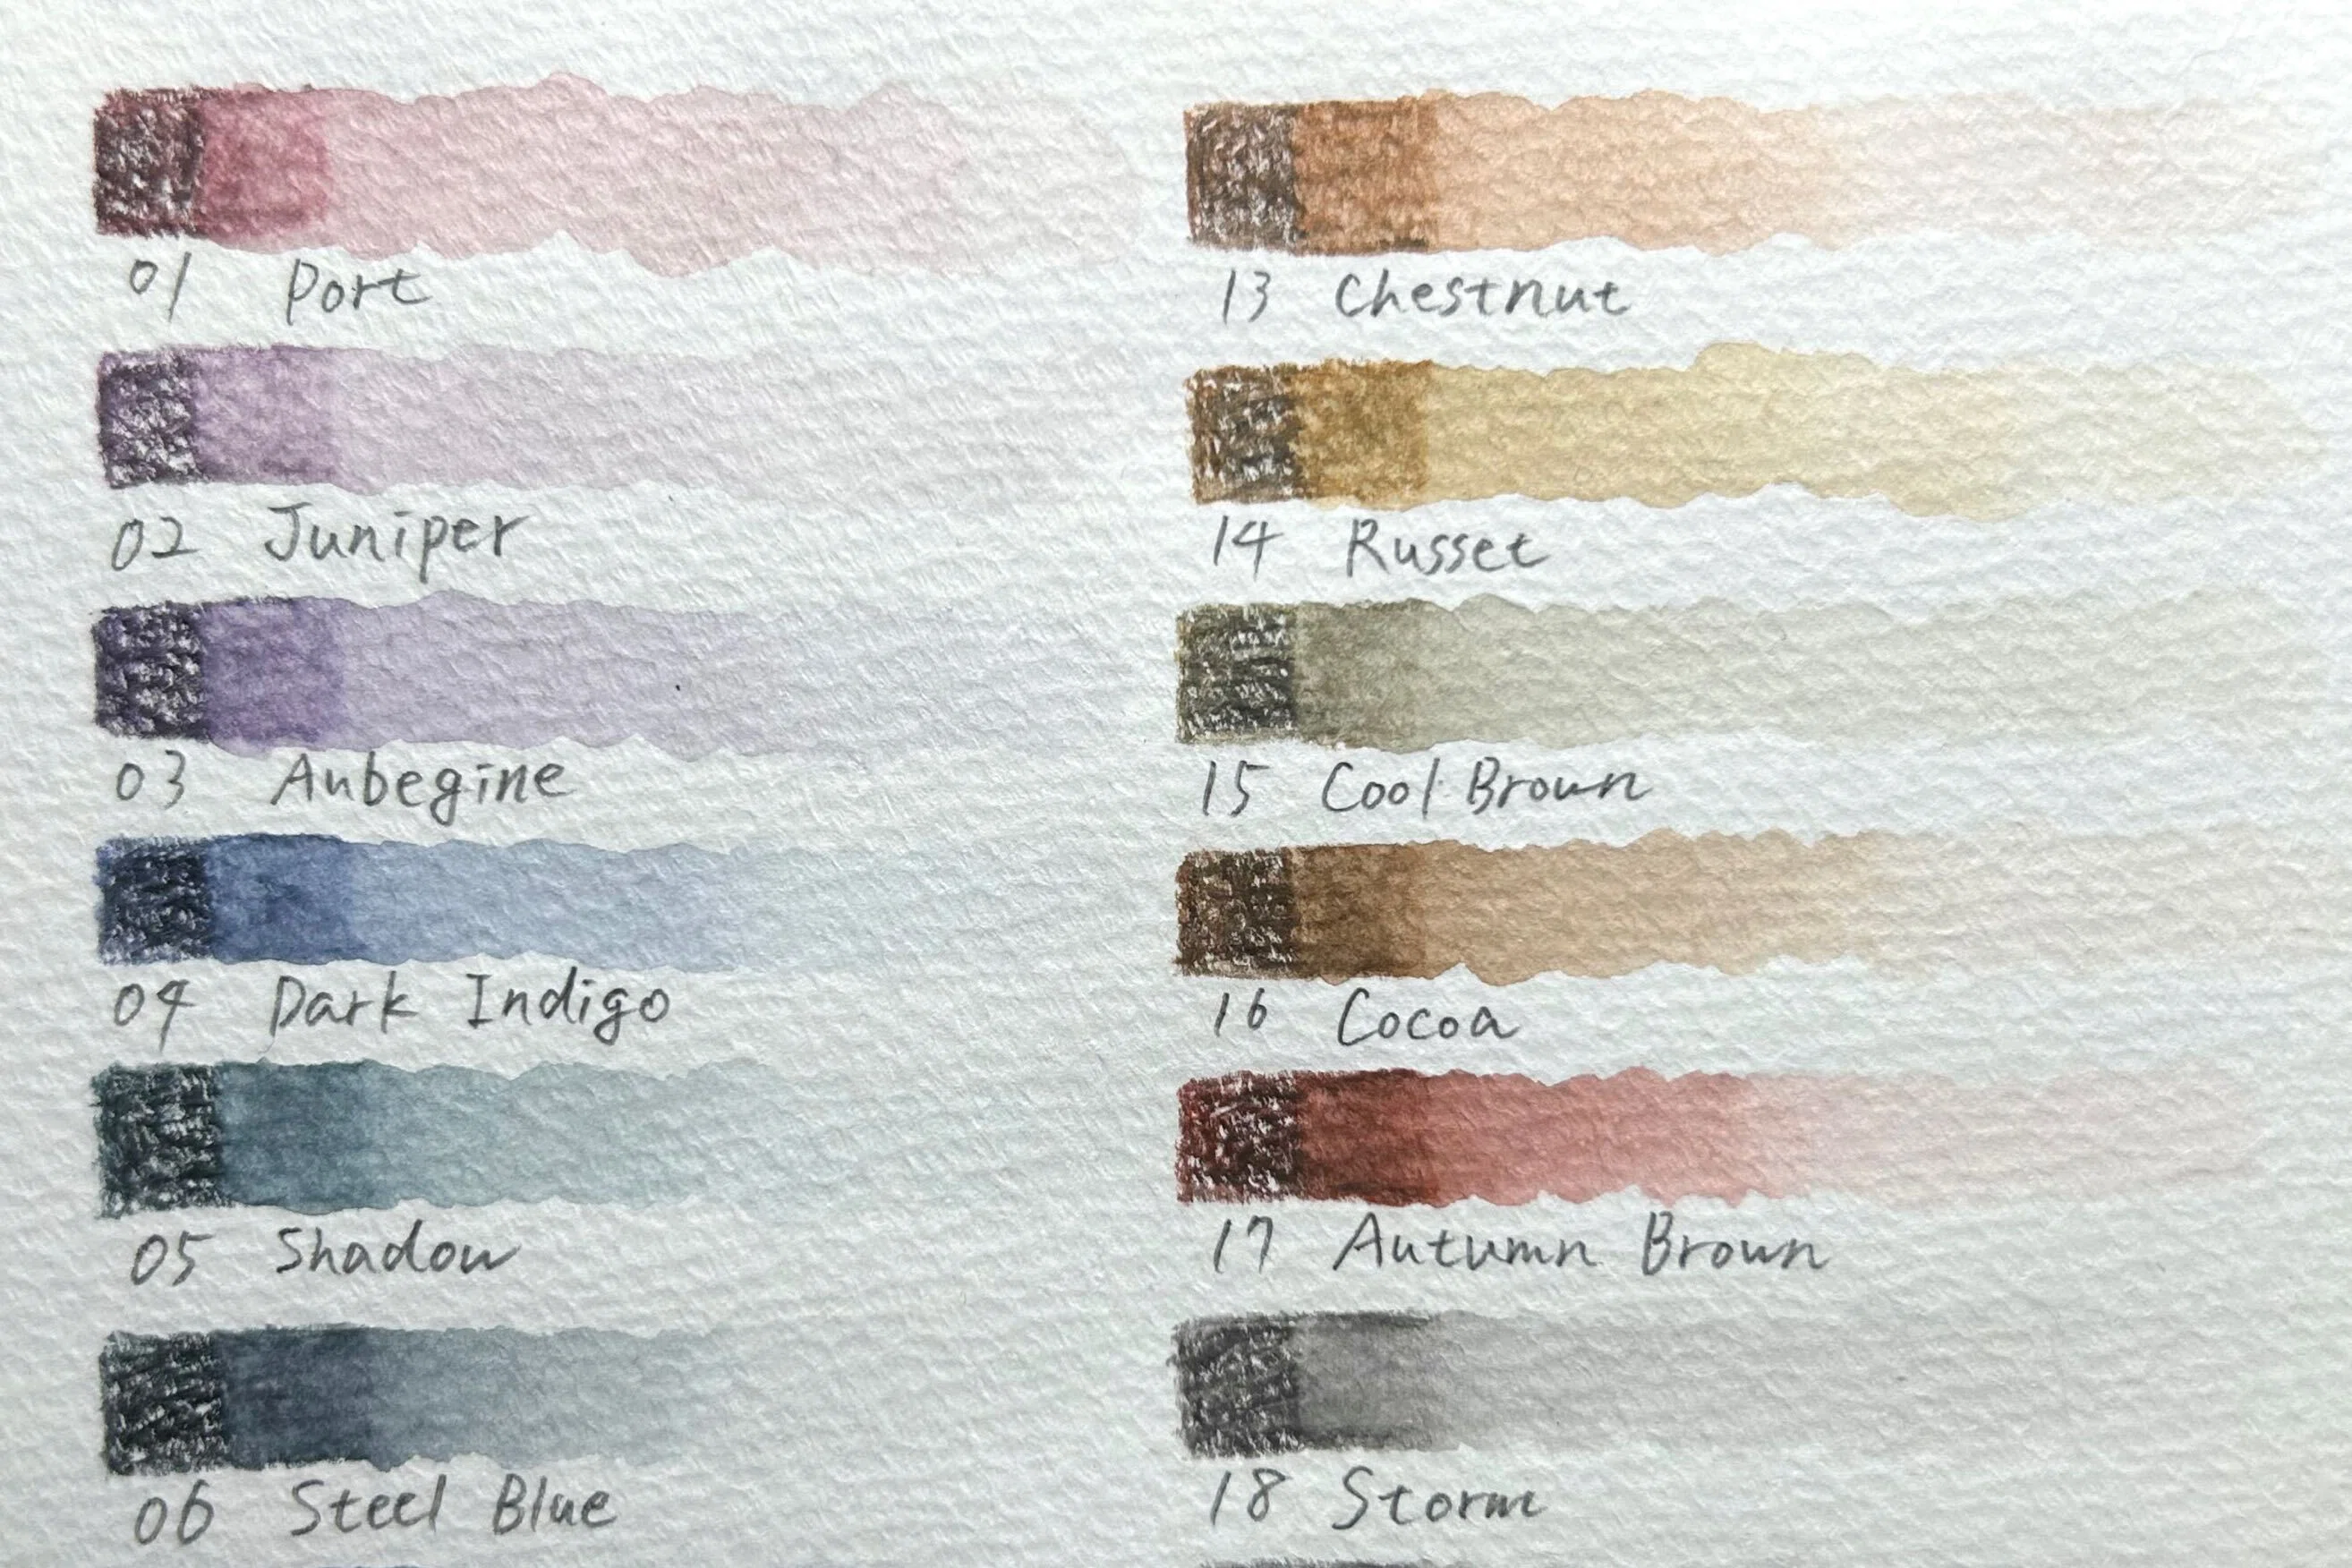 01 Port
02 Juniper
03 Aubegine
04 Dark Indigo
05 Shadow
06 Steel Blue
13 Chestnut
14 Russet
15 Cool Brown
16 Cocoa
17 Autumn Brown
18 Storm